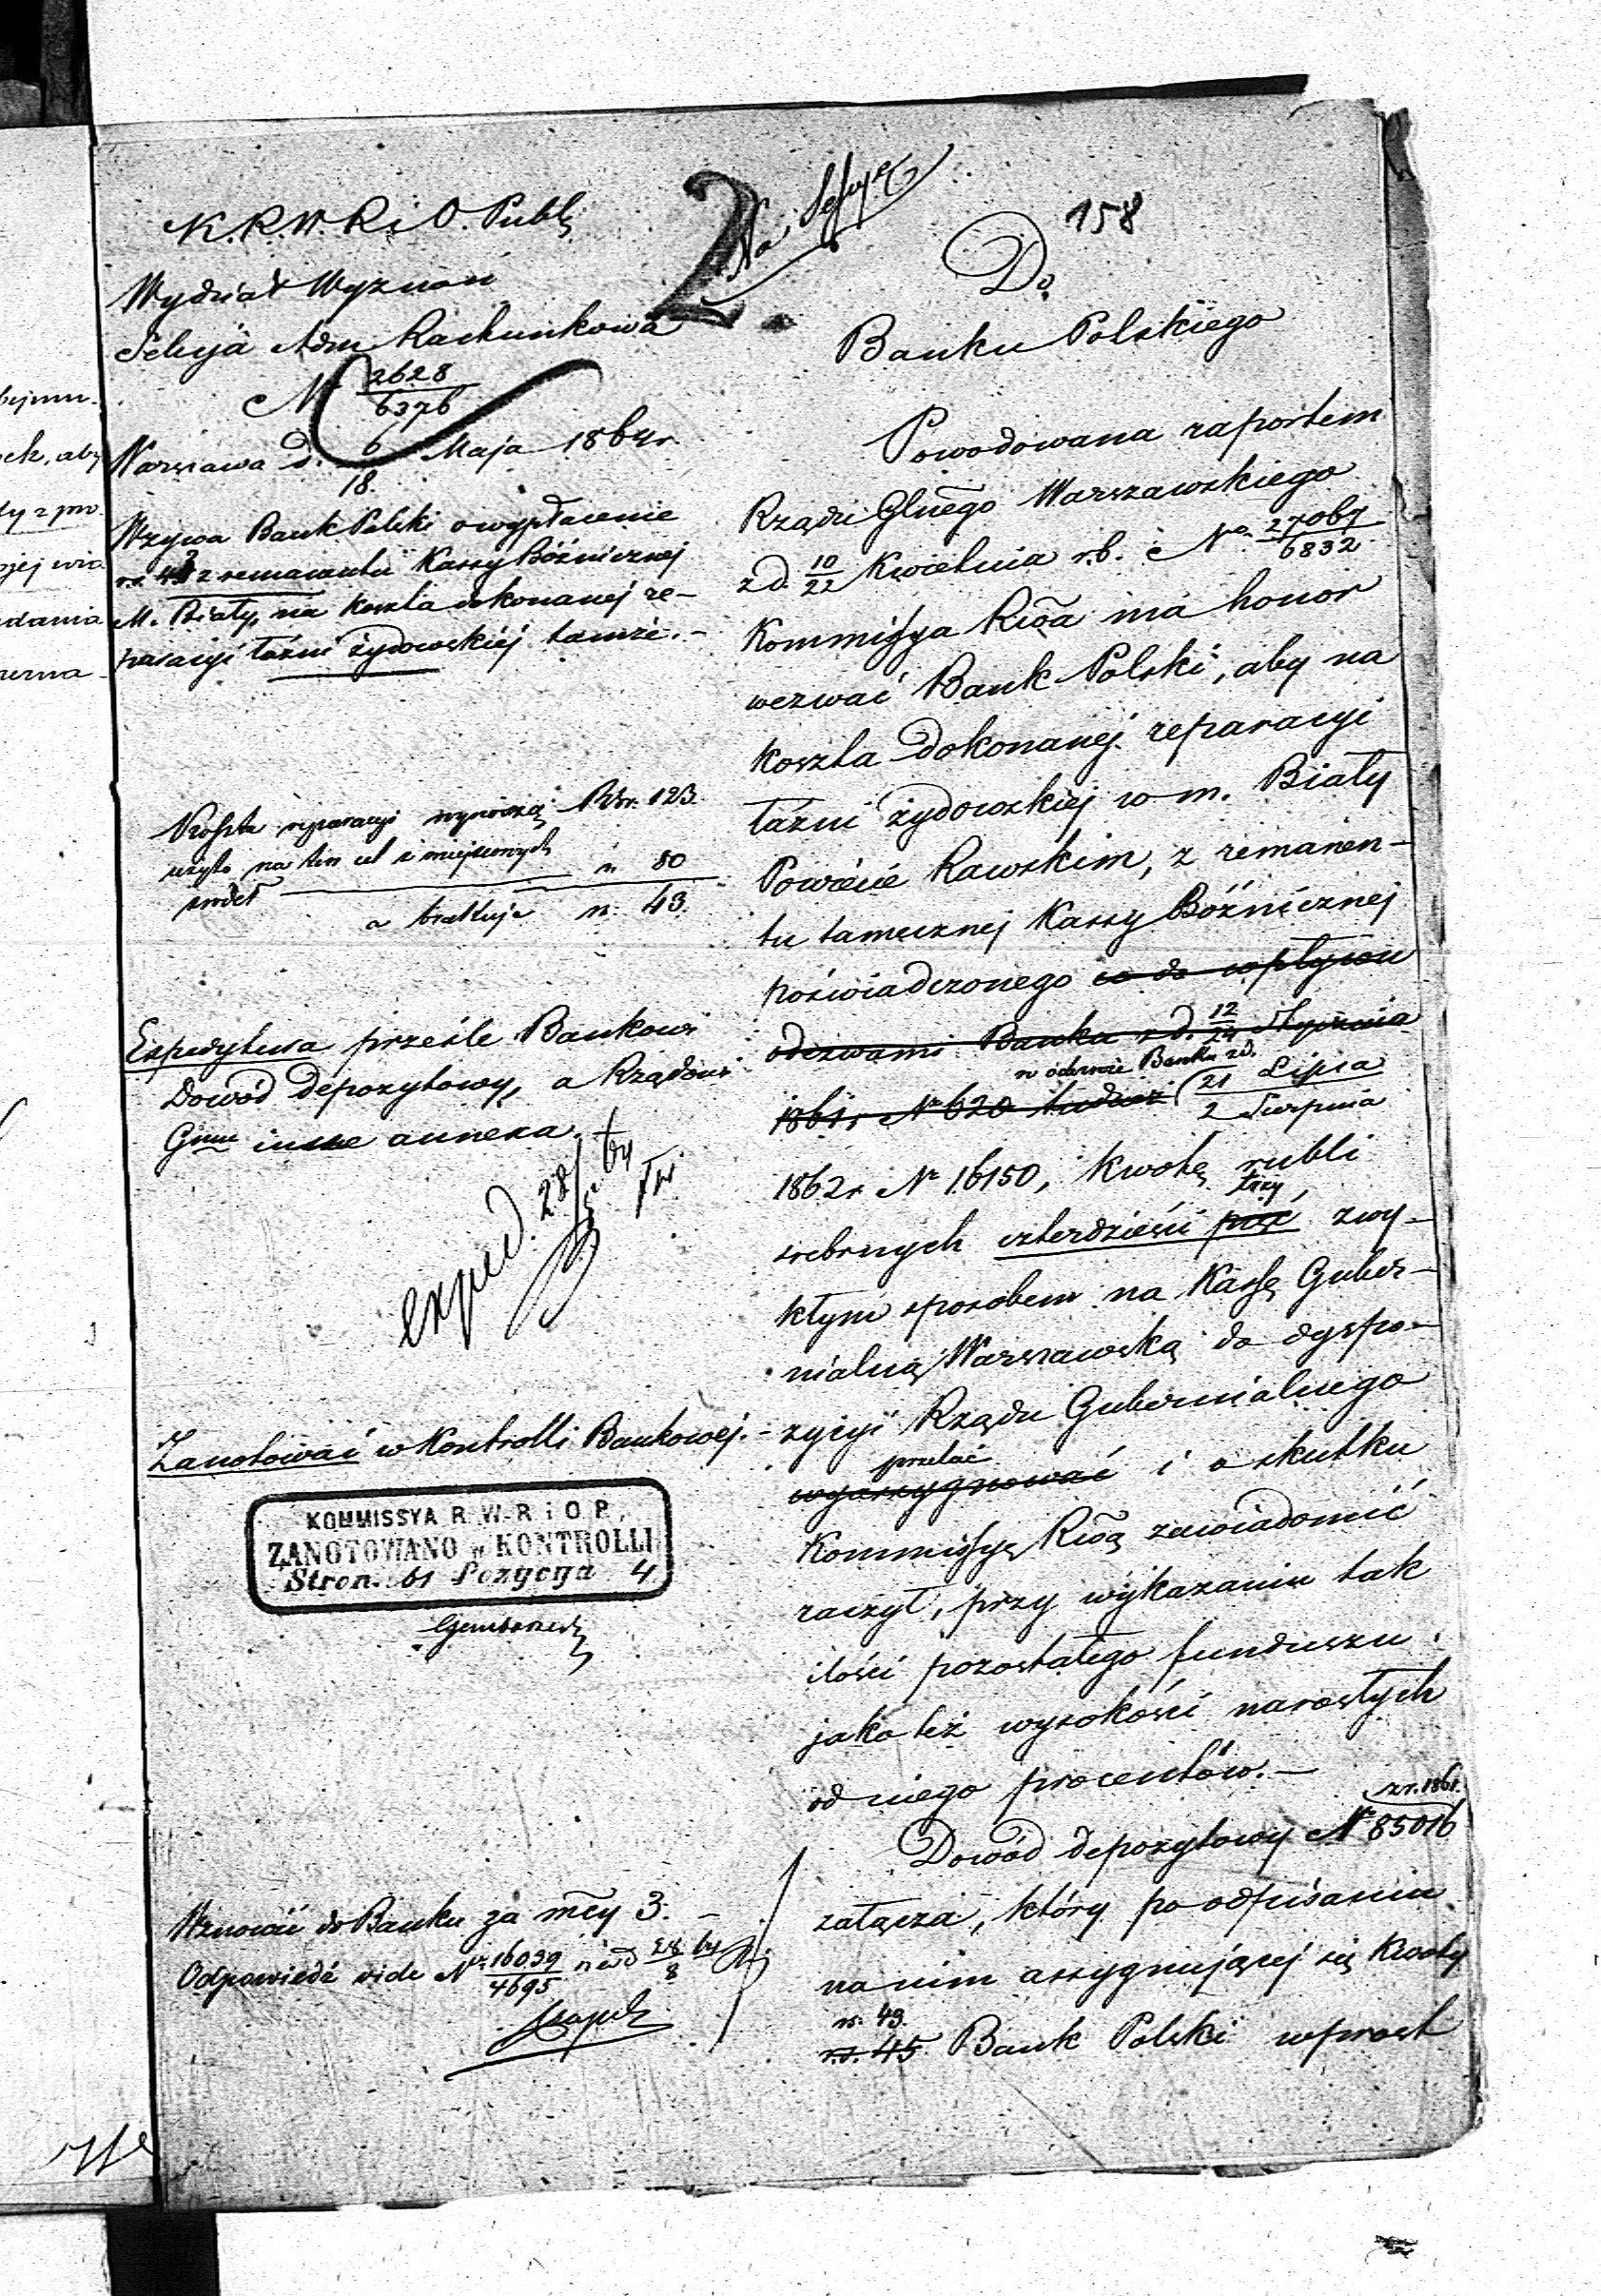 158
2.
Na Sessyę
K.R.W.R. i O. Publ.
Wydział Wyznań
Sekcyja Adm Rachunkowa
N 2628/6376
Warszawa d. 6/18 Maja 1864 r.
Wzywa Bank Polski o wypłacenie
rs. 43 z remanentu Kassy Bóźnicznej
M. Biały, na koszta dokonanej re-
paracyi łaźni żydowskiéj tamże.-
Koszta reparacyi wynoszą Rsr. 123.
użyto na ten cel z miejscowych
źródeł rs. 80
a brakuje rs. 43.
Expedytura prześle Bankowi
Dowód depozytowy, a Rządowi
Gmu inne annexa.
exped. 28/5 64
Zanotować w Kontrolli Bankowej.-
KOMMISSYA R.W.R i O.P.
ZANOTOWANO w KONTROLLI
Stron. 61 Pozycya 4
Wznowić do Banku za mcy 3. -
Odpowiedź vide N 16039/4695
Do
Banku Polskiego
Powodowana raportem
Rządu Glnego Warszawskiego
z d. 10/22 Kwietnia r.b. No 27069/6832
Kommissya Rząa má honor
wezwać Bank Polski, aby na
koszta dokonanéj reparacyi
łaźni żydowskiej w m. Biały
Powiecie Rawskim, z remanen-
tu tamecznej Kassy Bóźnicznej
poświadczonego co do wpływu
odezwami Banku z d. 12/24 Stycznia
w odezwie Banku z d.
1861 r N 620 tudzież 21 Lipca/2 Sierpnia
1862 r N 16150, kwotę rubli
trzy
srebrnych czterdzieści pięć, zwy-
kłym sposobem na Kassę Guber-
nialną Warszawską do dyspo-
zycyi Rządu Gubernialnego
przelać
wyassygnować i o skutku
Kommissyą Rząą zawiadomić
raczył, przy wykazaniu tak
ilości pozostałego funduszu
jako też wysokości narosłych
od niego procentów.-
z r. 1861.
Dowód depozytowy N 85016
załącza, który po odpisaniu
na nim assygnującej się kwoty
rs. 43.
r.s. 45 Bank Polski wprost